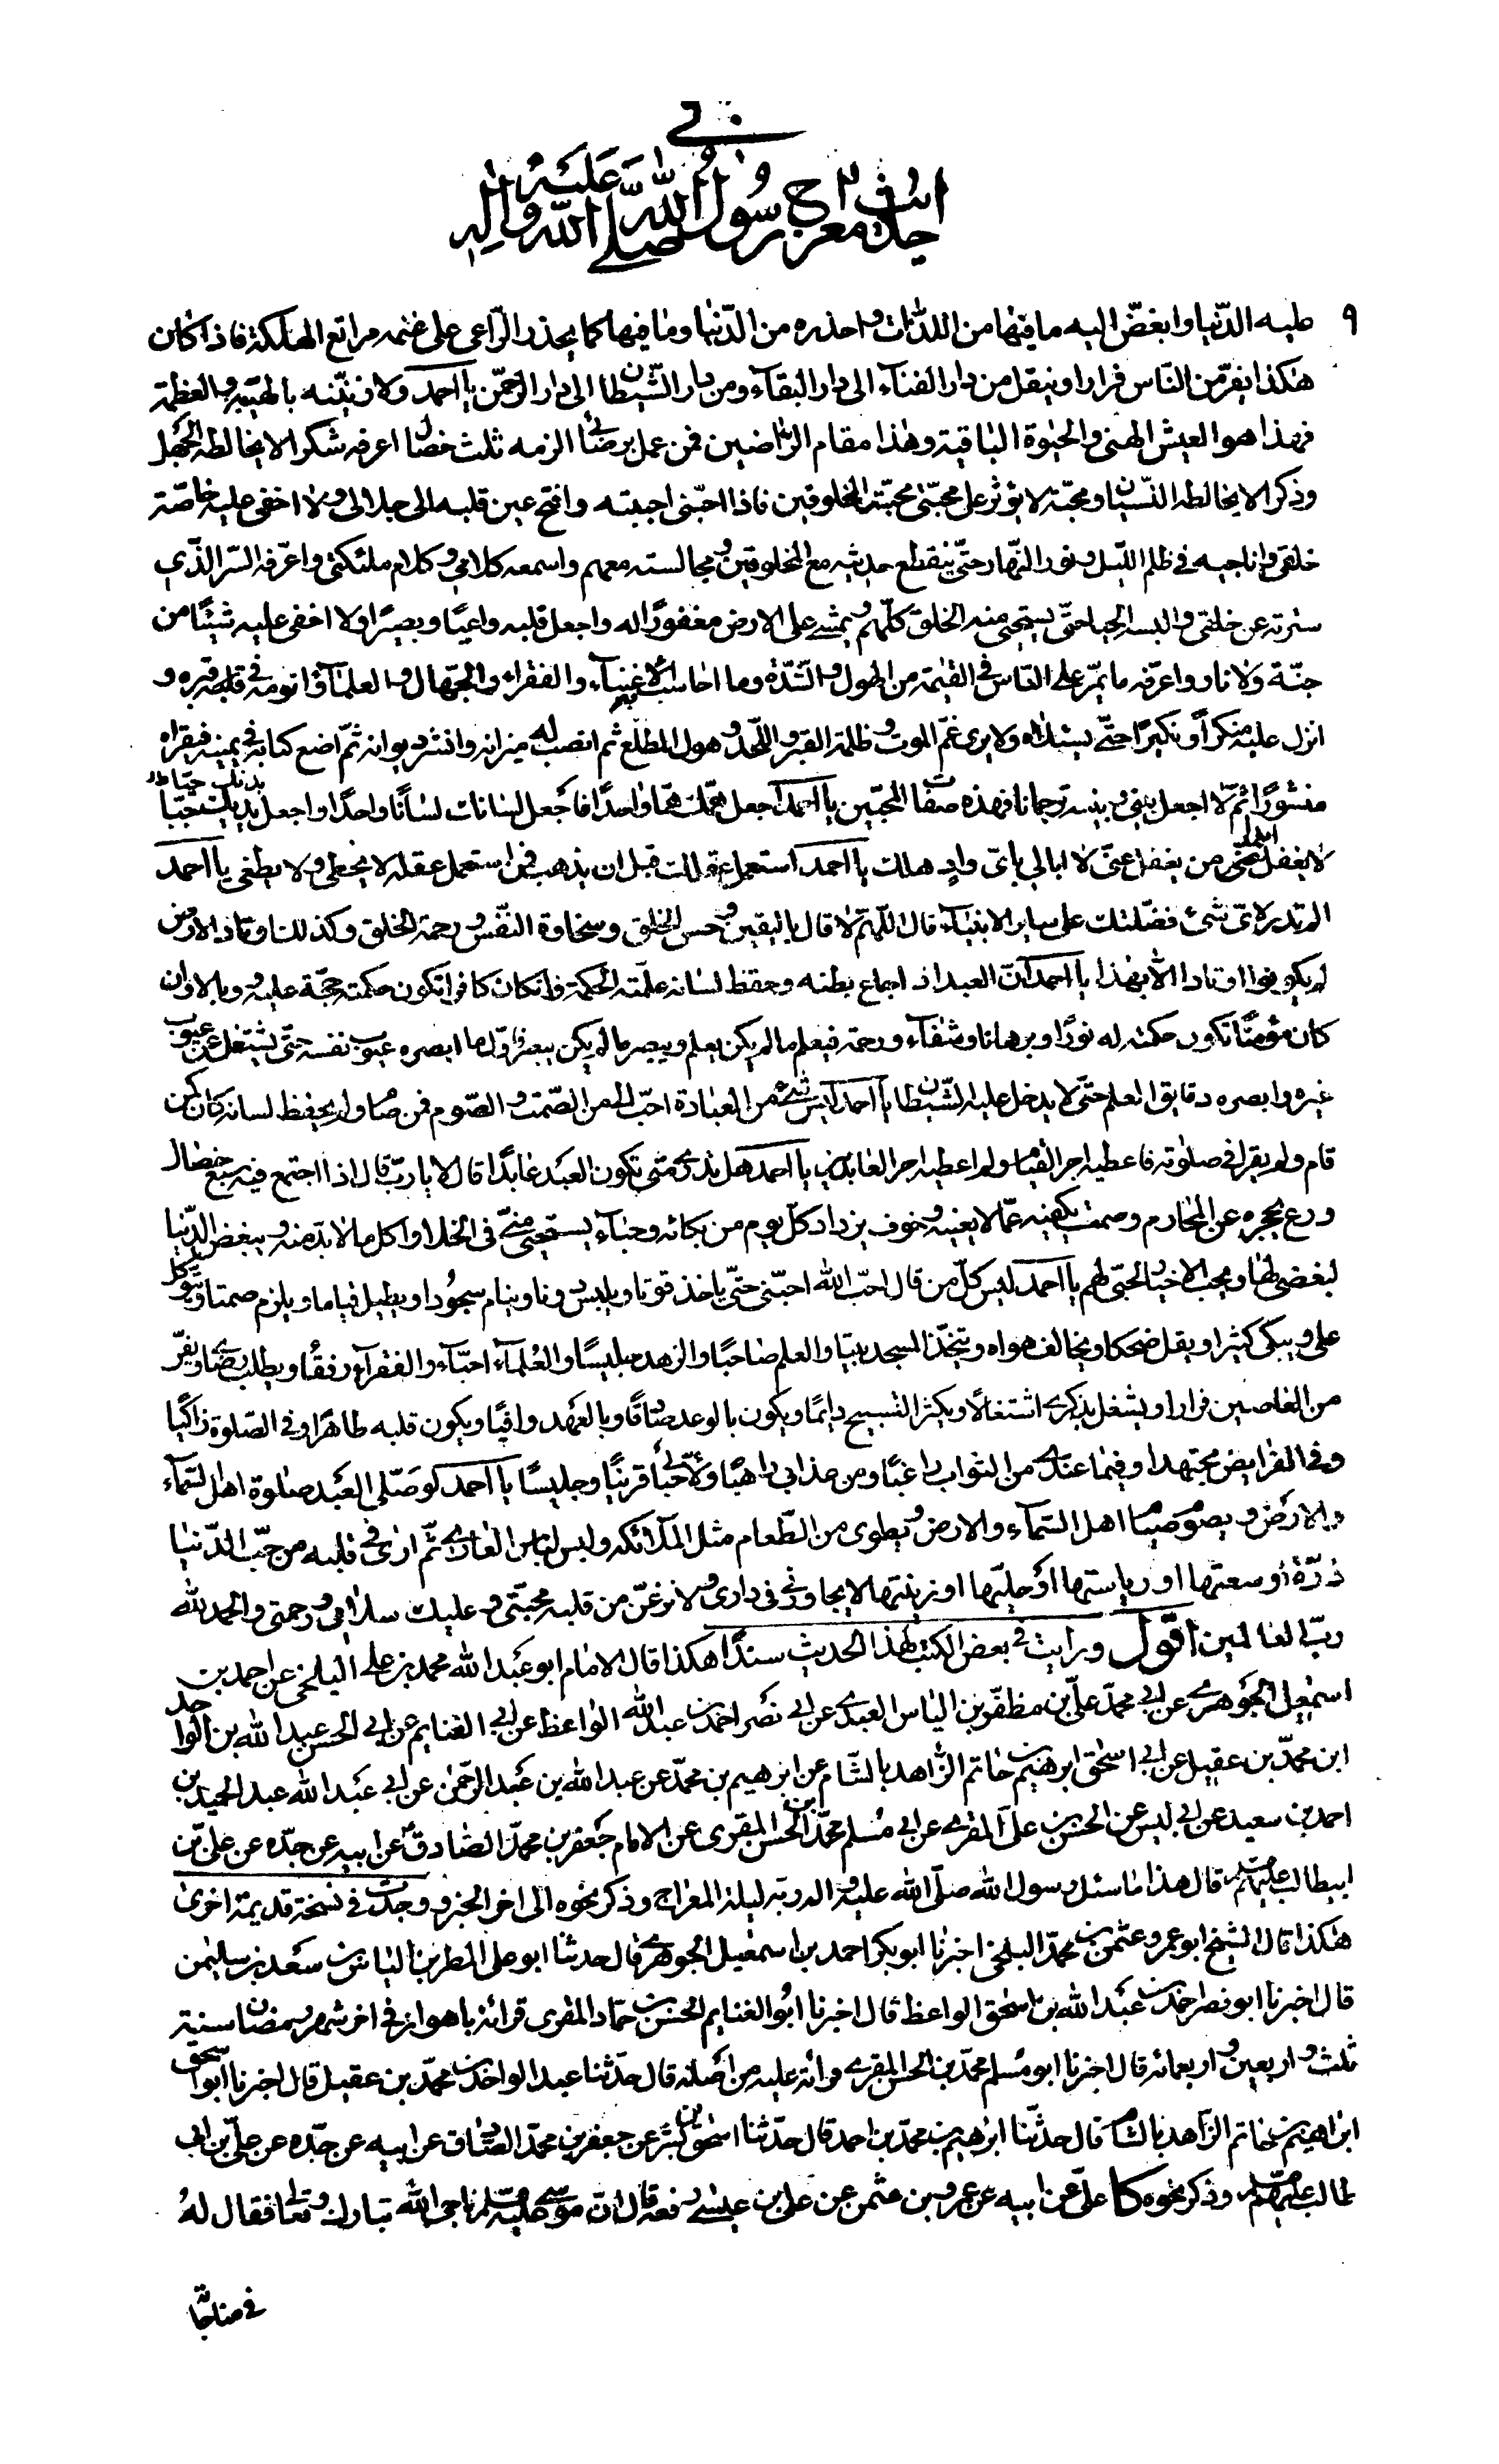 في
احاديث معراج رسول الله صلى الله عليه وآله
٩
عليه الدّنيا وابغضّ اليه ما فيها من اللذّات واحذره من الدّنيا وما فيها كما يحذر الرّاعى على غنمه مراتع الهلكة فاذا كان
هكذا يفرّ من النّاس فرارا وينقل من دار الفناء الى دار البقآء ومن دار الشّيطان الى دار الرّحمن يا احمد ولازيّننه بالهيبة والعظمة
فهذا هو العيش الهنى والحيوة الباقية وهذا مقام الرّاضين فمن عمل برضائى الزمه ثلث خصال اعرفه شكرا لا يخالطه الجهل
وذكرا لا يخالطه النّسيان ومحبّة لا يؤثر على محبّتى محبّة المخلوقين فاذا احبّنى احببته وافتح عين قلبه الى جلالى ولا اخفى عليه خاصّة
خلقى واناجيه في ظلم اللّيل ونور النّهار حتّى ينقطع حديثه مع المخلوقين ومجالسته معهم واسمعه كلامى وكلام ملئكتى واعرّفه السّرّ الّذي
سترته عن خلقى والبسه الحيا حتّى يستحيى منه الخلق كلّهم ويمشى على الارض مغفورًا له واجعل قلبه واعيًا وبصيرًا ولا اخفى عليه شيئًا من
جنّة ولا نار واعرّفه ما يمرّ على النّاس في القيٰمة من الهول والشّدّة وما احاسب به الاغنيآء والفقراء والجهّال والعلمآء وانومه في قبره و
انزل عليه منكرًا ونكيرًا حتّى يسئلاه ولا يرى غمّ الموت وظلمة القبر واللّحد وهول المطّلع ثم انصب له ميزانه وانشر ديوانه ثمّ اضع كتابه في يمينه فيقراه
منشورًا ثمّ لا اجعل بينى وبينه ترجمانا فهذه صفات المحبّين يا احمد اجعل همّك همّا واحدًا فاجعل لسانك لسانًا واحدًا واجعل بدنك حيّا
لا يغفل عنّى من يغفل عنّى لا ابالى باىّ وادٍ هلك يا احمد استعمل عقلك قبل ان يذهب فمن استعمل عقله لا يخطى ولا يطغى يا احمد
الم تدر لاىّ شئ فضّلتك على ساير الانبيآء قال اللّهمّ لا قال باليقين وحسن الخلق وسخاوة النّفس ورحمة الخلق وكذلك اوتاد الارض
لم يكونوا اوتادا الّا بهذا يا احمد انّ العبد اذا جاع بطنه وحفظ لسانه علّمته الحكمة وان كان كافرا تكون حكمته حجّة عليه ووبالا وان
كان مؤمنًا تكون حكمته له نورًا وبرهانا وشفآء ورحمة فيعلم ما لم يكن يعلم ويبصر ما لم يكن يبصر فاوّل ما ابصره عيوب نفسه حتّى يشتغل عن عيوب
غيره وابصره دقايق العلم حتّى لا يدخل عليه الشّيطان يا احمد ليس شئ من العبادة احبّ الىّ من الصّمت والصّوم فمن صام ولم يحفظ لسانه كان كمن
قام ولم يقرا في صلوته فاعطيه اجر القيام ولم اعطيه اجر العابدين يا احمد هل تدرى متى تكون العبد عابدًا قال لا يا ربّ قال اذا اجتمع فيه سبع خصال
ورع يحجزه عن المحارم وصمت يكفيه عمّا لا يعنيه وخوف يزداد كلّ يوم من بكائه وحياء يستحيى منّى في الخلا واكل ما لا بدّ منه ويبغض الدّنيا
لبغضى لها ويحبّ الاخيار لحبّى لهم يا احمد ليس كلّ من قال احبّ الله احبّنى حتّى ياخذ قوتا ويلبس دونا وينام سجودًا ويطيل قياما ويلزم صمتا ويتوكّل
علىّ ويبكى كثيرا ويقل ضحكا ويخالف هواه ويتخذ المسجد بيتًا والعلم صاحبًا والزهد جليسًا والعُلمآء احبّآء والفقرآء رفقاء ويطلب رضاى ويفرّ
من العاصين فرارا ويشغل بذكرى اشتغالًا ويكثر التّسبيح دايمًا ويكون بالوعد صادقًا وبالعهد وافيًا ويكون قلبه طاهرًا وفي الصّلوة زاكيًا
وفي الفرايض مجتهدا وفيما عندى من الثّواب راغبًا ومن عذابي راهبًا ولاحبّائى قرينًا وجليسًا يا احمد لو صلّى العبد صلوة اهل السّمآء
والارض ويصوم صيام اهل السّمآء والارض ويطوى من الطّعام مثل الملآئكه ولبس لباس العارى ثمّ ارى في قلبه من حبّ الدّنيا
ذرّة او سعتها او رياستها او حليّها او زينتها لا يجاورنى في دارى ولانزعنّ من قلبه محبّتى وعليك سلامى ورحمتى والحمد لله
ربّ العالمين اقول ورايت في بعض الكتب لهذا الحديث سندًا هكذا قال الامام ابو عبد الله محمد بن على البلخى عن احمد بن
اسمعيل الجوهرى عن ابى محمد علىّ بن مظفّر بن الياس العبدى عن ابى نصر احمد بن عبد الله الواعظ عن ابى الغنايم عن ابى الحسن عبد الله بن الواحد
ابن محمّد بن عقيل عن ابى اسحٰق ابرهيم بن حاتم الزّاهد بالشّام عن ابرهيم بن محمّد عن عبد الله بن عبد الرّحمن عن ابى عبد الله عبد الحميد بن
احمد بن سعيد عن ابى بشر عن الحسن بن علىّ المقرى عن ابى مسلم محمّد بن الحسن المقرى عن الامام جعفر بن محمّد الصّادق عن ابيه عن جدّه عن علىّ بن
ابيطالب عليهم السلم قال هذا ما سئل رسول الله صلّى الله عليه واله ربّه ليلة المعراج وذكر نحوه الى اخر الخبر ووجدت في نسخة قديمة اخرى
هٰكذا قال الشيخ ابو عمرو عثمن بن محمّد البلخى اخبرنا ابو بكر احمد بن اسمعيل الجوهرى قال حدثنا ابو على المطر بن الياس بن سعد بن سليمن
قال اخبرنا ابو نصر احمد بن عبد الله بن اسحق الواعظ قال اخبرنا ابو الغنايم الحسن بن حمّاد المقرى قرائة باهواز في اخر شهر رمضان سنة
ثلث واربعين واربعمائه قال اخبرنا ابو مسلم محمّد بن الحسن المقرى قرائة عليه من اصله قال حدّثنا عبد الواحد بن محمّد بن عقيل قال اخبرنا ابو اسحق
ابراهيم بن حاتم الزّاهد بالشام قال حدثّنا ابرهيم بن محمد بن احمد قال حدّثنا اسحٰق بن بشر عن جعفر بن محمّد الصّادق عن ابيه عن جدّه عن علىّ بن ابى
طالب عليهم السلم وذكر نحوه كا علىّ عن ابيه عن عمرو بن عثمن عن على بن عيسى رفعه قال انّ موسى عليه السلم ناجاه الله تبارك وتعالى فقال له
في مناجاته